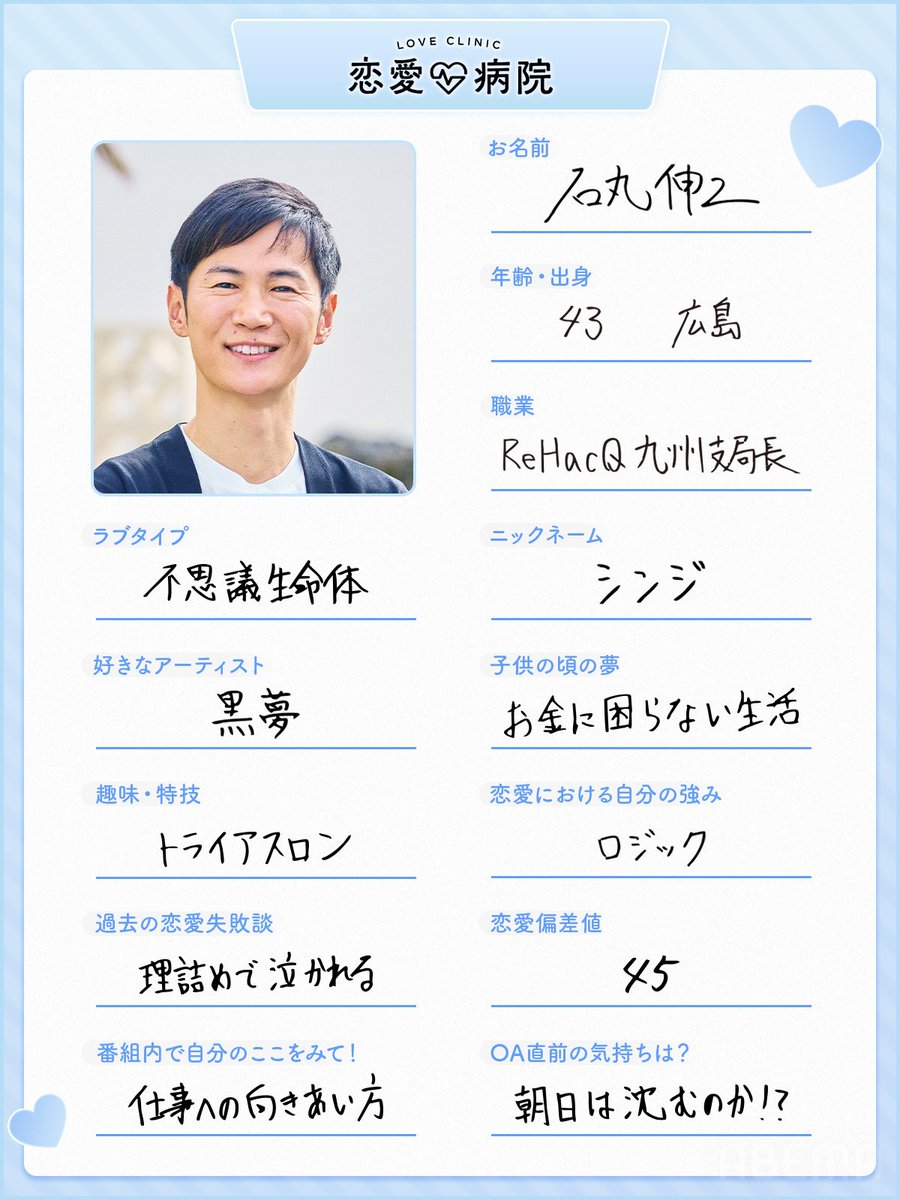 LOVE CLINIC
恋愛病院
お名前
石丸伸二
年齢・出身
43 広島
職業
ReHacQ九州支局長
ラブタイプ
不思議生命体
ニックネーム
シンジ
好きなアーティスト
黒夢
子供の頃の夢
お金に困らない生活
趣味・特技
トライアスロン
恋愛における自分の強み
ロジック
過去の恋愛失敗談
理詰めで泣かれる
恋愛偏差値
45
番組内で自分のここをみて!
仕事への向きあい方
OA直前の気持ちは?
朝日は沈むのか!?
ABEMA